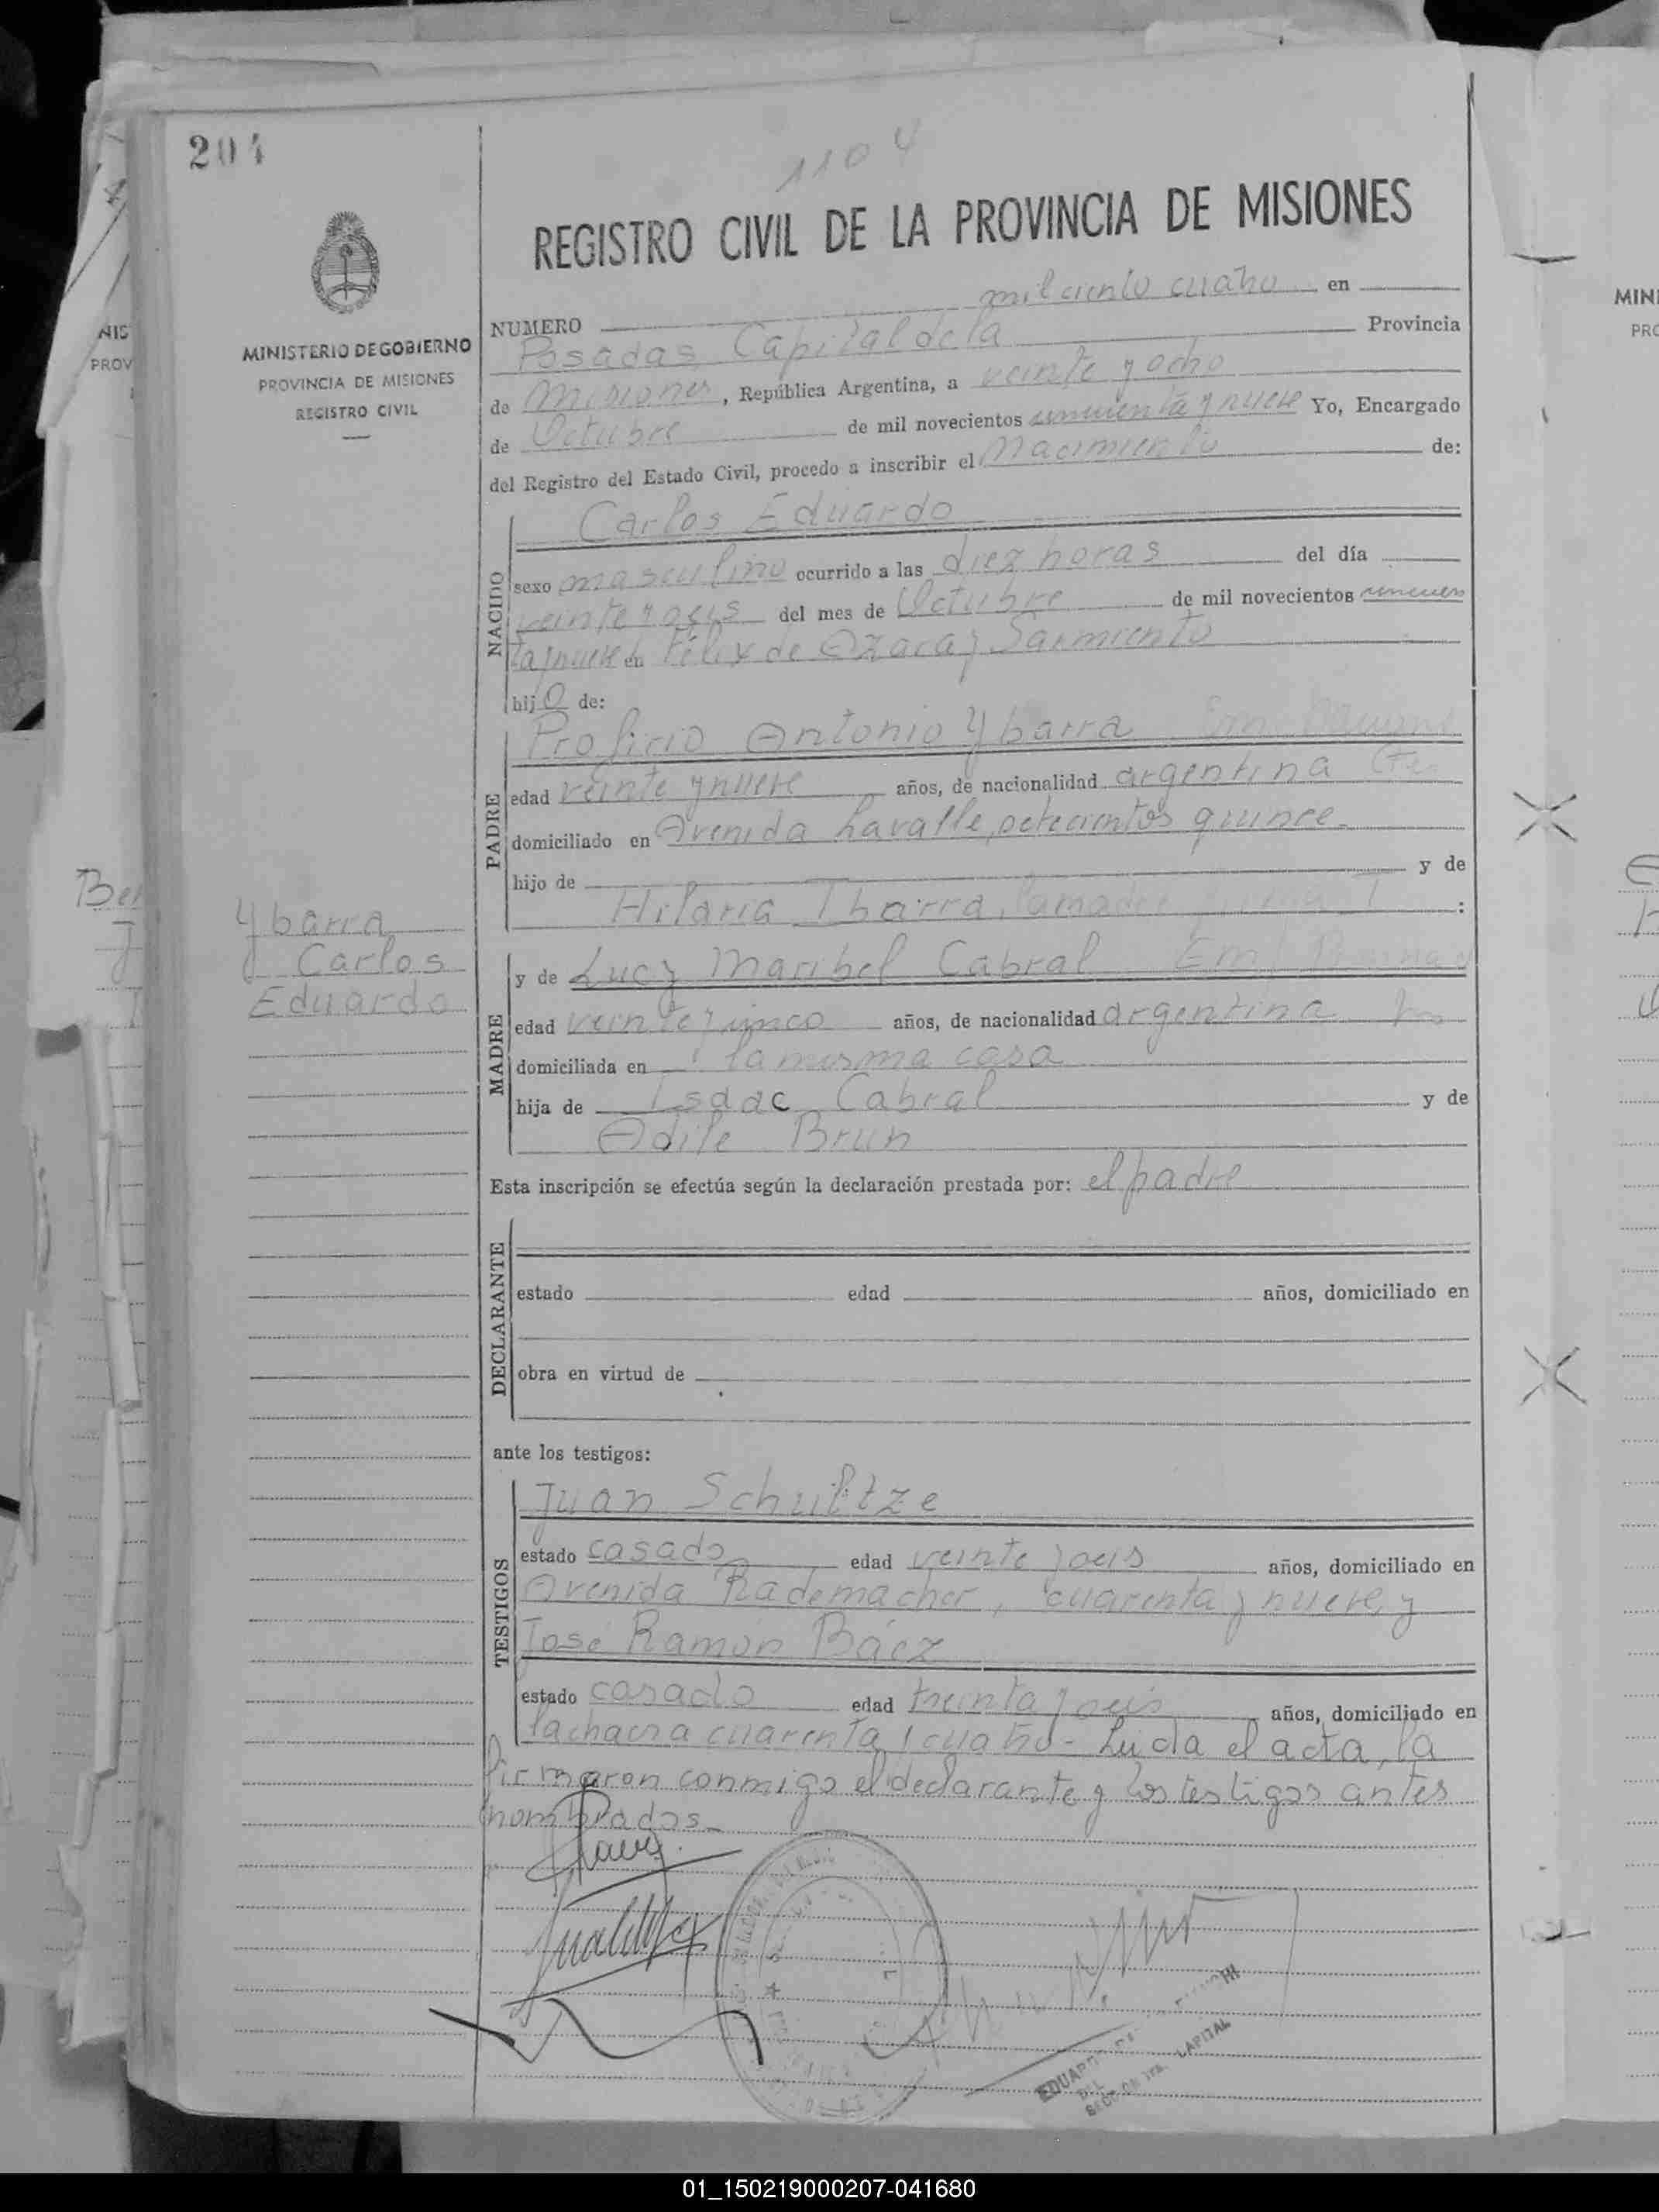 204
1104
REGISTRO CIVIL DE LA PROVINCIA DE MISIONES
MINISTERIO DE GOBIERNO
PROVINCIA DE MISIONES
REGISTRO CIVIL
NUMERO mil ciento cuatro en
Posadas, Capital de la Provincia
de Misiones, República Argentina, a veinte y ocho
de Octubre de mil novecientos cincuenta y nueve Yo, Encargado
del Registro del Estado Civil, procedo a inscribir el Nacimiento de:
NACIDO
Carlos Eduardo
sexo masculino ocurrido a las diez horas del día
veinte y seis del mes de Octubre de mil novecientos cincuen
ta y nueve en Félix de Azara y Sarmiento
hijo de:
PADRE
Profirio Antonio Ybarra
edad veinte y nueve años, de nacionalidad argentina
domiciliado en Avenida Lavalle, setecientos quince.
hijo de y de
Hilaria Ibarra :
Ybarra
Carlos
Eduardo
MADRE
y de Lucy Maribel Cabral
edad veinte y cinco años, de nacionalidad argentina
domiciliada en la misma casa
hija de Isaac Cabral y de
Adile Brun
Esta inscripción se efectúa según la declaración prestada por: el padre
DECLARANTE
estado edad años, domiciliado en
obra en virtud de
ante los testigos:
TESTIGOS
Juan Schultze
estado casado edad veinte y seis años, domiciliado en
Avenida Rademacher, cuarenta y nueve, y
José Ramón Báez
estado casado edad treinta y seis años, domiciliado en
la chacra cuarenta y cuatro - Leída el acta, la
firmaron conmigo el declarante y los testigos antes
nombrados.
CAPITAL
01_150219000207-041680